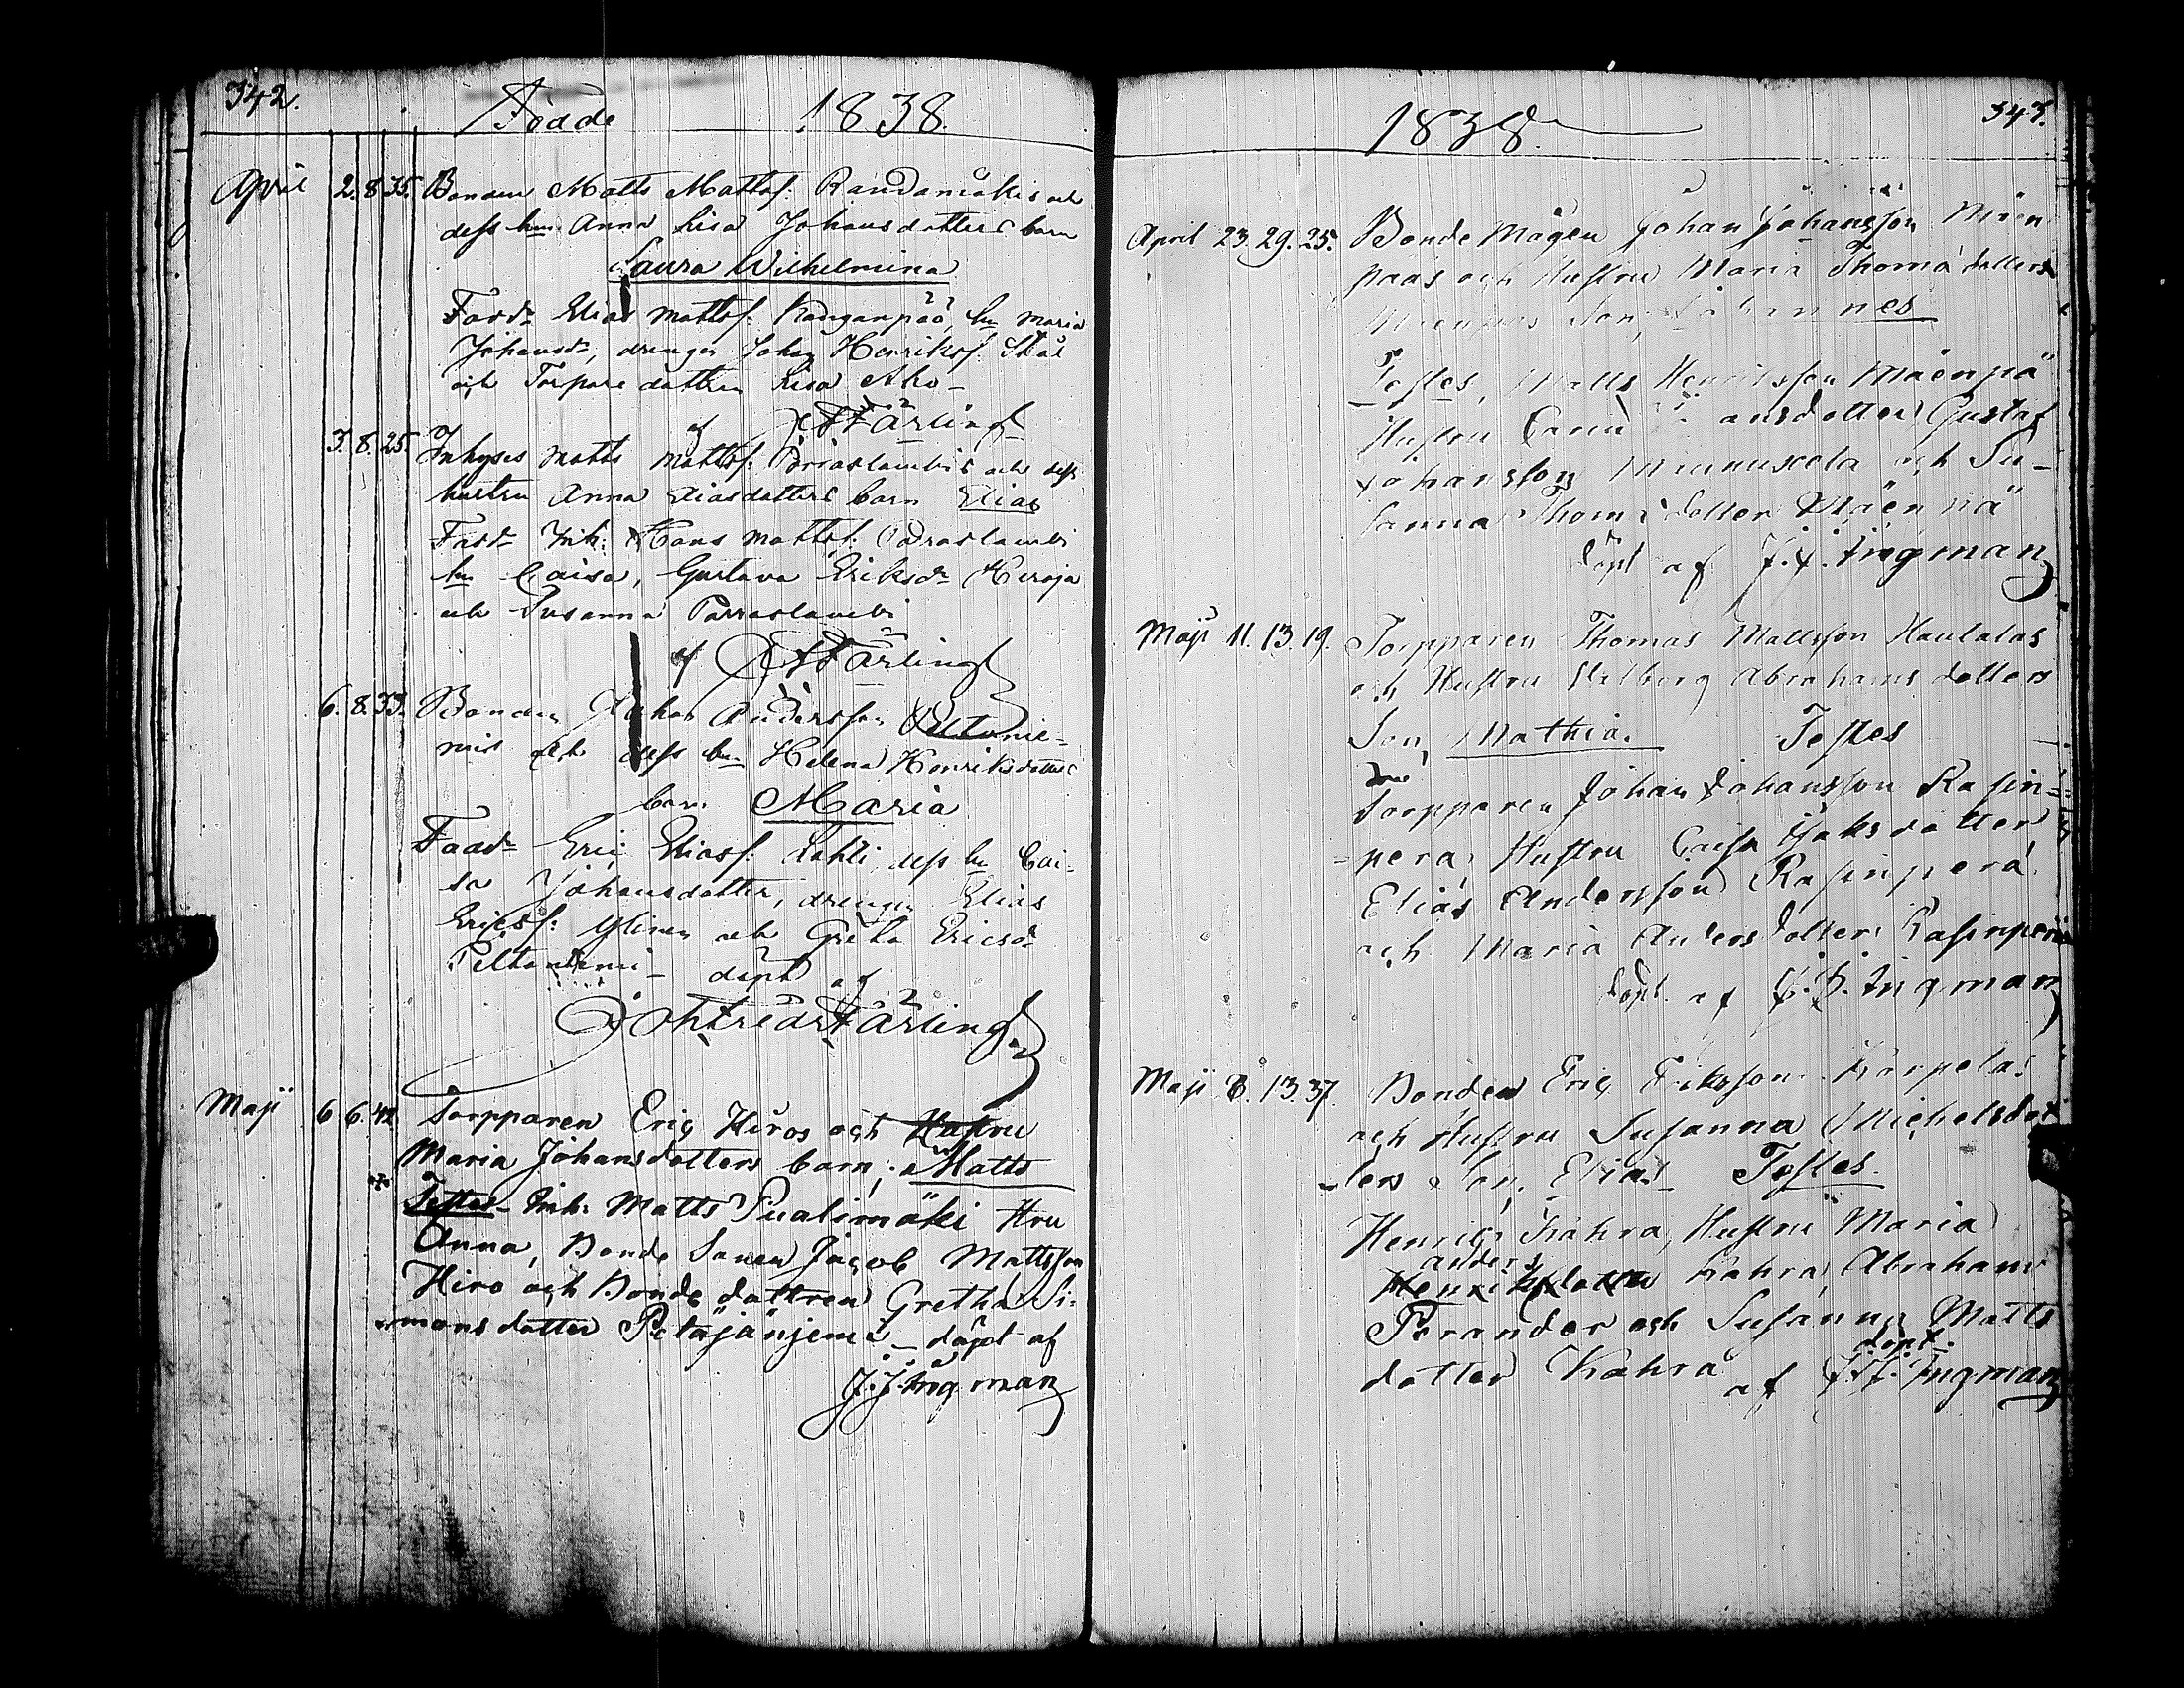 342.
Födde 1838.
April 2. 8. 35. Bonden Matts Mattsf: Randamäkis och
dess hu Anna Lisa Johansdotters barn
Laura Wilhelmina
Fadd: Elias Mattsf. Kanganpää, hu Maria
Johansdr, drengen Johan Henriksf.
och Torpare dottren Lisa Aho -
af Färling
3. 8. 25. Inhyses Matts Mattsf. och dess
hustru Anna Eliasdotters barn Elias
Fadd: Inh: Hans Mattsf.
hu Caisa, Gustava Eriksdr Heroja
och Susanna
af Färling
6. 8. 33. Bonden Johan Andersson
mis och dess hu Helena Henriksdotters
barn Maria
Fadd: Eric Eliasf. Lahti, dess hu Cai-
sa Johansdotter, drengen Elias
Ericsf: Ylinen och Greta Ericsdr
Peltoniemi - döpt af
Färling
Maji 6 6. 42 Torpparen Eric Hiros och Hustru
Maria Johansdotters barn; Matts
Testes - Inh: Matts Hru
Anna, Bonde Sonen Jacob Mattsson
Hiro och Bonde dottren Gretha Si-
monsdotter Petäjäniemi - döpt af
J. J. Ingman
1838.
343.
April 23. 29. 25. Bonde Mågen Johan Johansson Mäen
pääs och Hustru Maria Thomädotters
Mäenpää Son, Johannes
Testes, Matts Henriksson Mäenpä
Hustru dotter, Gustaf
Johansson och Su-
sanna Thomädotter Mäenpä
döpt af J. J. Ingman
Maji 11. 13. 19. Torpparen Thomas Mattsson Hautalas
och Hustru Valborg Abrahams dotters
Son, Mathias Testes
Torpparen Johan Johansson Rasin-
pera, Hustru Caisa dotter
Elias Andersson Rasinperä
och Maria Anders dotter Rasinperä
döpt af J. J. Ingman
Maji 8. 13. 37. Bonden Eric Eriksson Karpelas
och Hustru Susanna Michelsdot
ters Son, Elias Testes
Henric Kahra, Hustru Maria
anders
Henriksdotter Kahra, Abraham
och Susanna Matts
dotter Kahra döpt
af J. J. Ingman